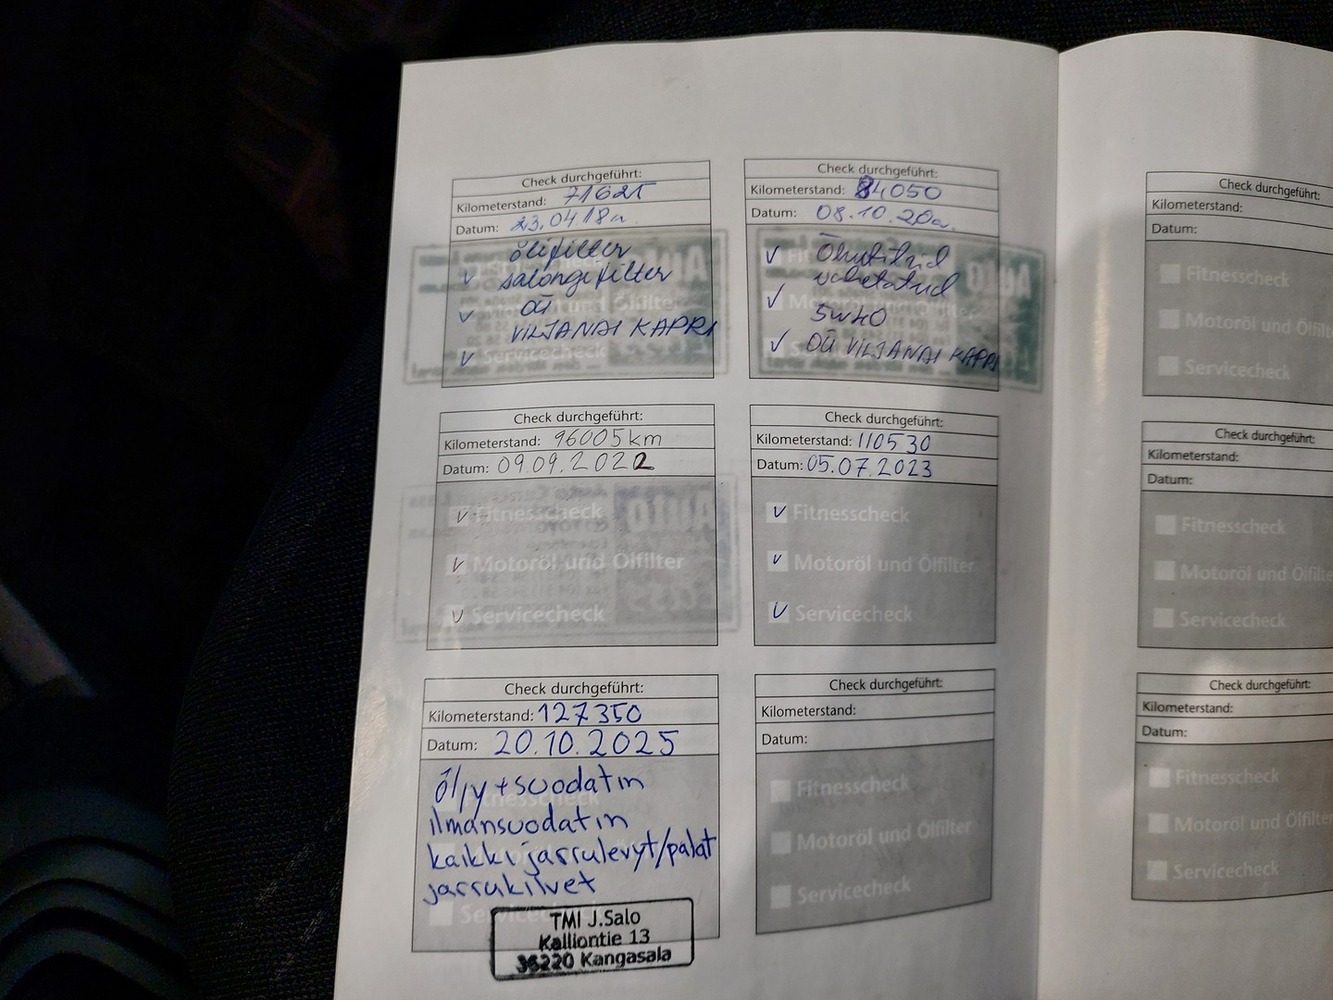 Check durchgeführt:
Kilometerstand: 71625
Datum: 23.04.18a.
õlifilter
salongifilter
OÜ
VILJANDI KAPRI
Servicecheck
Check durchgeführt:
Kilometerstand: 84050
Datum: 08.10.20a.
Õhufiltrid
vahetatud
5W40
OÜ VILJANDI KAPRI
Check durchgeführt:
Kilometerstand: 96005km
Datum: 09.09.2022
Fitnesscheck
Motoröl und Ölfilter
Servicecheck
Check durchgeführt:
Kilometerstand: 110530
Datum: 05.07.2023
Fitnesscheck
Motoröl und Ölfilter
Servicecheck
Check durchgeführt:
Kilometerstand: 127350
Datum: 20.10.2025
öljy+suodatin
ilmansuodatin
kaikki jarrulevyt/palat
jarrukilvet
TMI J.Salo
Kalliontie 13
36220 Kangasala
Check durchgeführt:
Kilometerstand:
Datum:
Fitnesscheck
Motoröl und Ölfilter
Servicecheck
Check durchgeführt:
Kilometerstand:
Datum:
Fitnesscheck
Motoröl und Ölfilte
Servicecheck
Check durchgeführt:
Kilometerstand:
Datum:
Fitnesscheck
Motoröl und Ölfilte
Servicecheck
Check durchgeführt:
Kilometerstand:
Datum:
Fitnesscheck
Motoröl und Ölfilter
Servicecheck